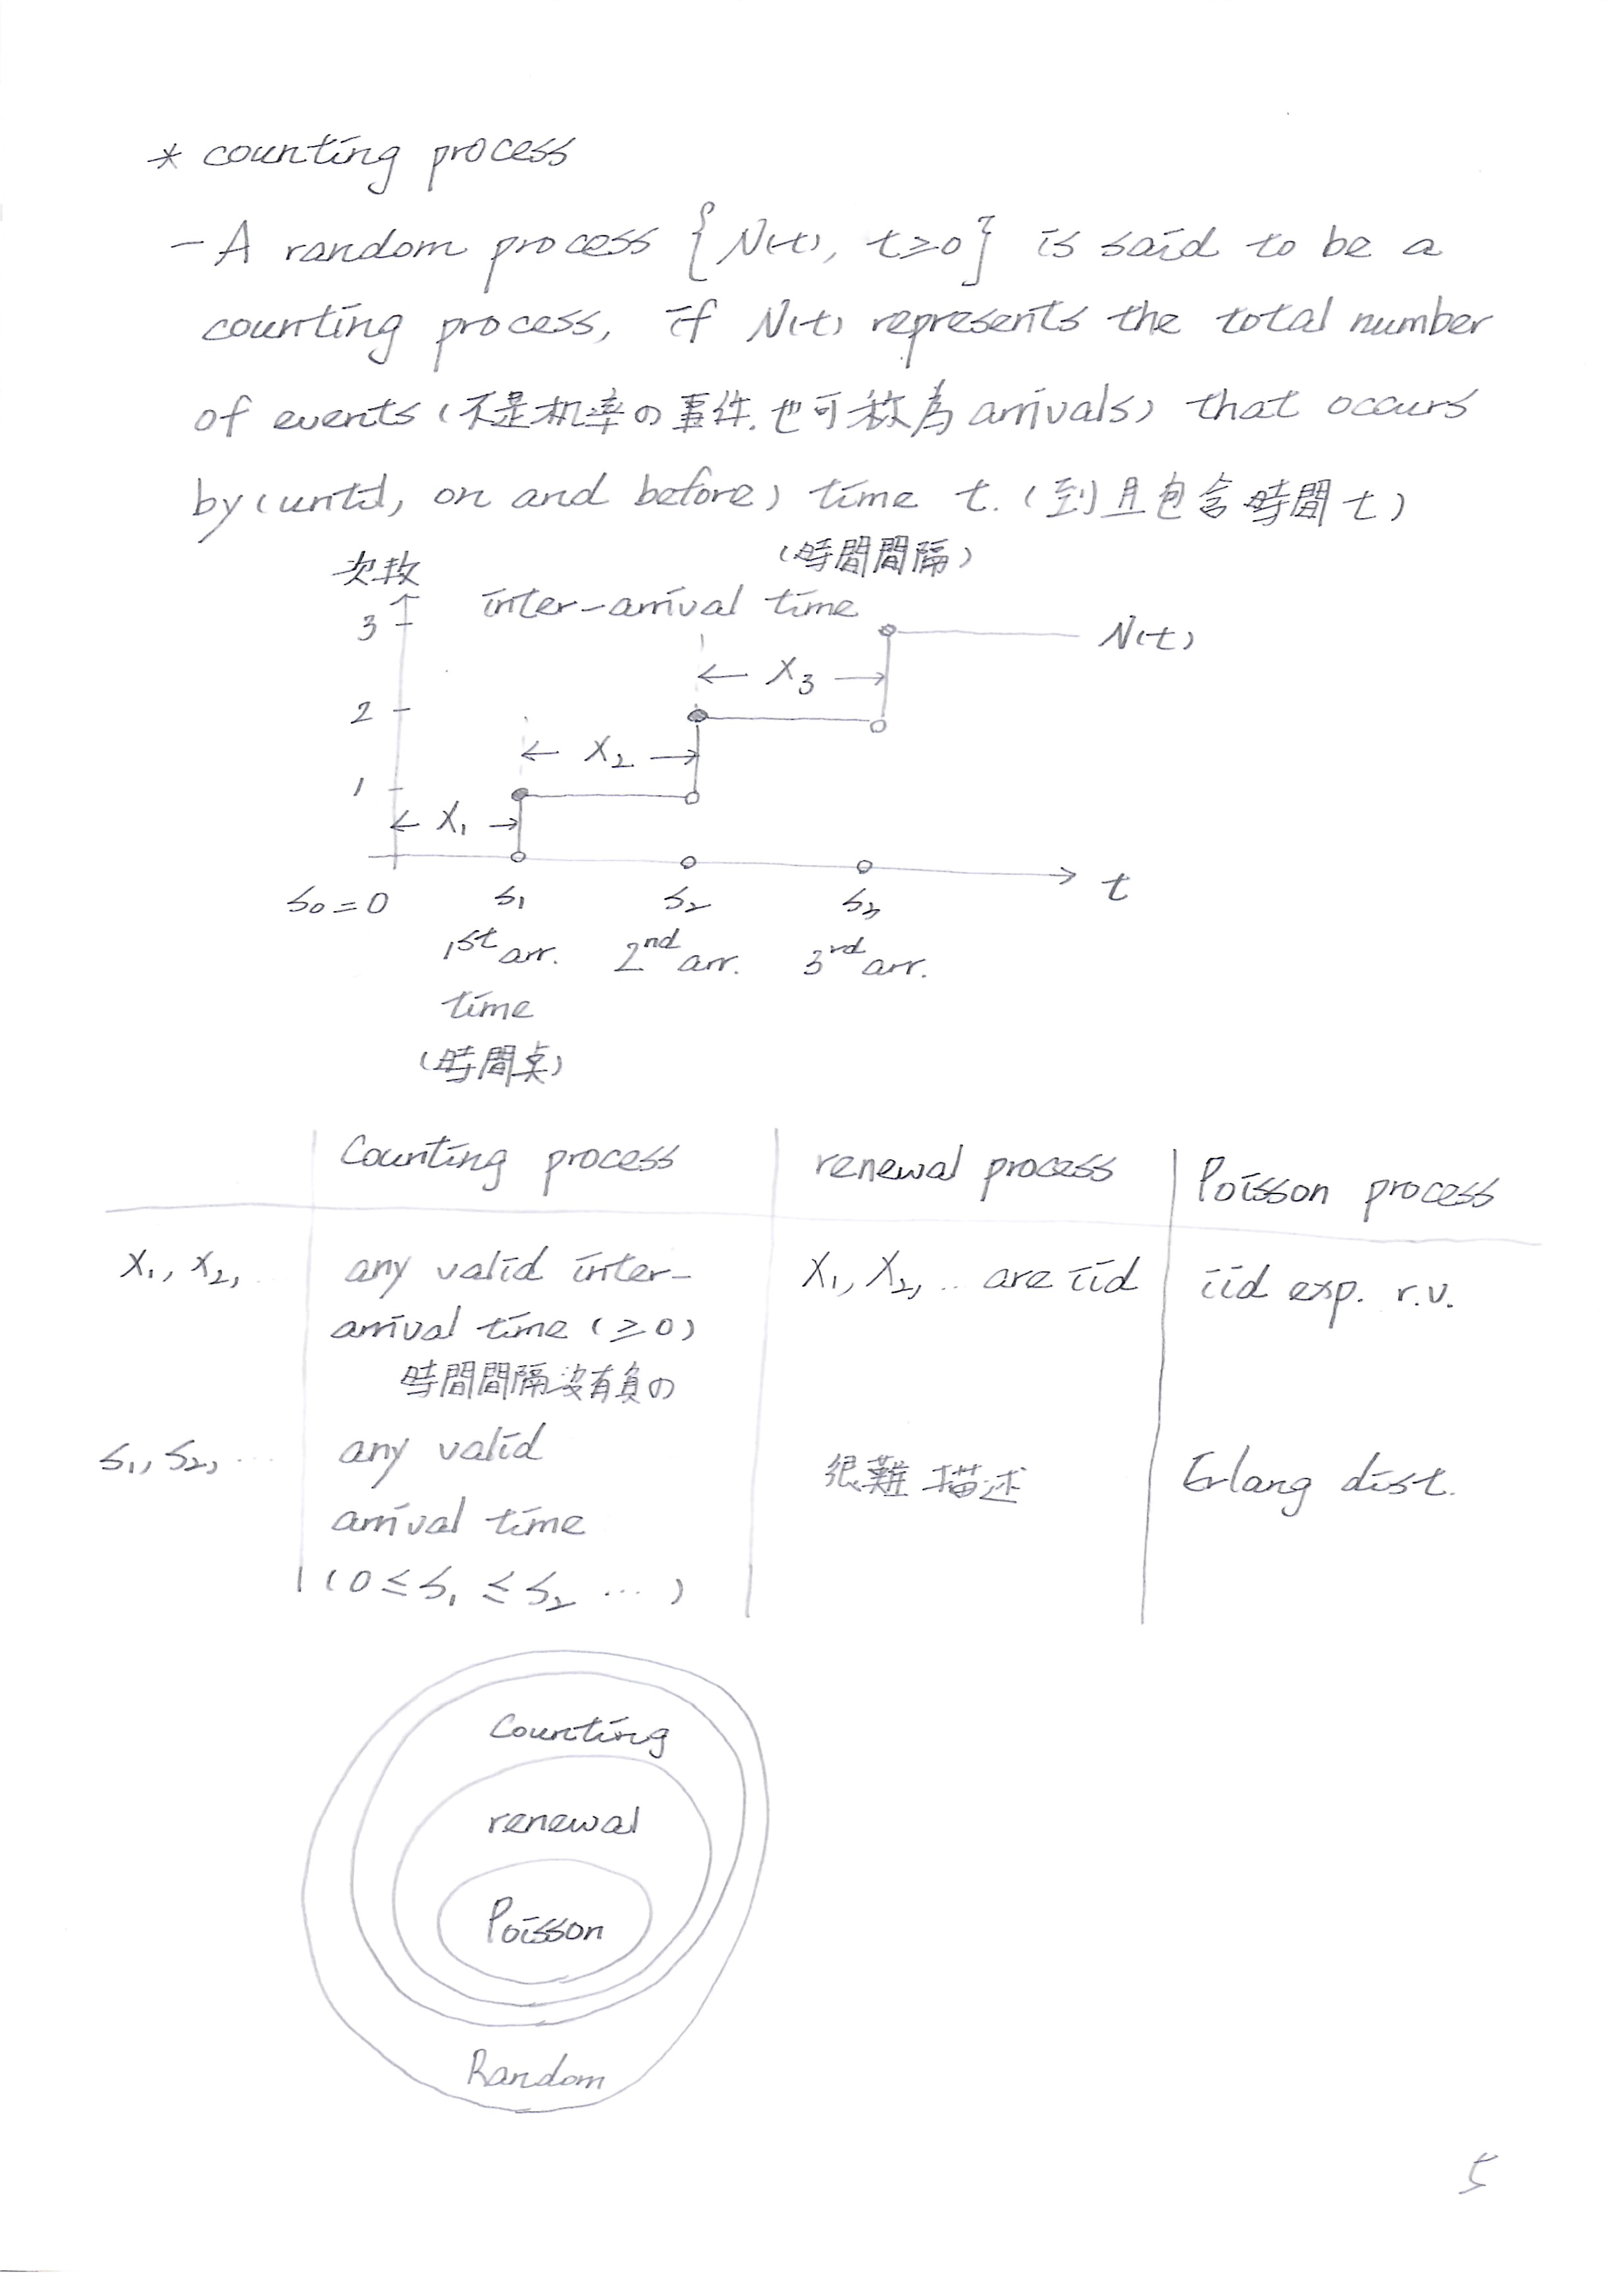 * counting process
- A random process {N(t), t≥0} is said to be a
counting process, if N(t) represents the total number
of events (不是机率の事件.也可称為 arrivals) that occurs
by (until, on and before) time t. (到且包含時間 t)
(時間間隔)
次数
inter-arrival time
3
N(t)
X₃
2
X₂
1
X₁
t
S₀=0
S₁
S₂
S₃
1st arr.
2nd arr.
3rd arr.
time
(時間点)
Counting process
renewal process
Poisson process
X₁, X₂, ...
any valid inter-
arrival time (≥0)
時間間隔沒有負の
X₁, X₂, ... are iid
iid exp. r.v.
S₁, S₂, ...
any valid
arrival time
(0 ≤ S₁ ≤ S₂ ...)
很難描述
Erlang dist.
Counting
renewal
Poisson
Random
5